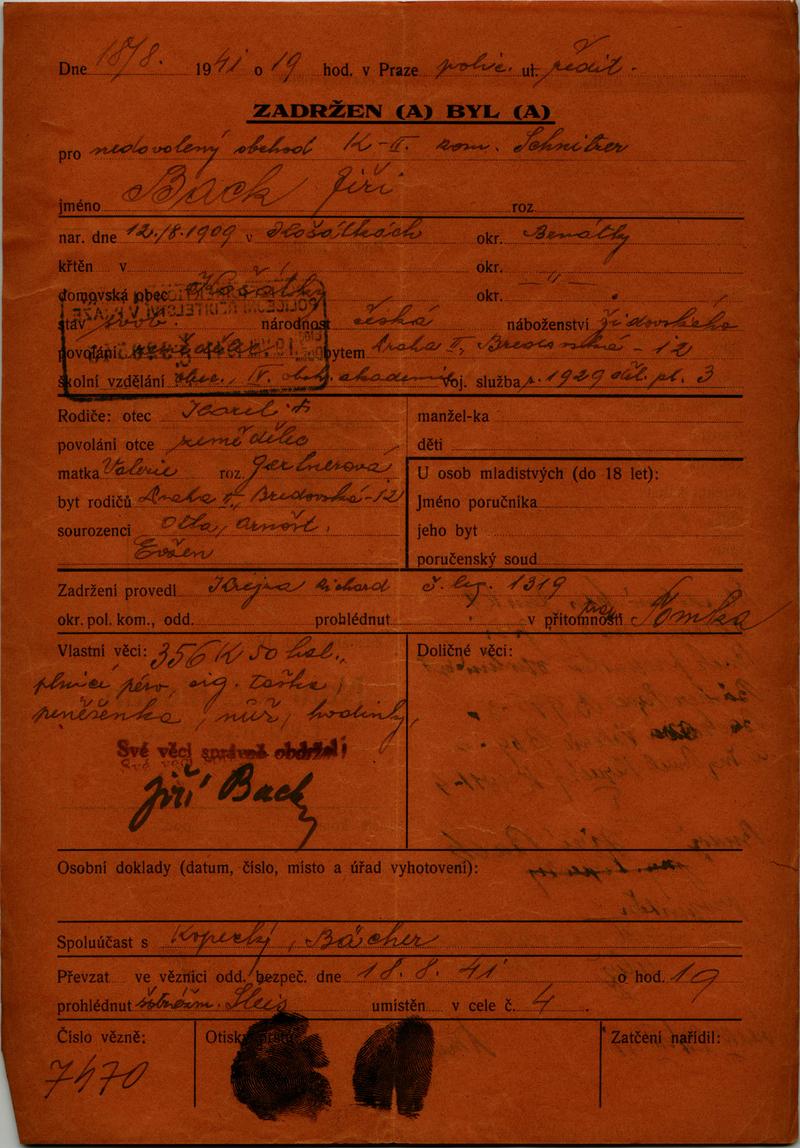 Dne 18/8. 1941 o 19 hod. v Praze polic. ul. ředit.
ZADRŽEN (A) BYL (A)
pro nedovolený obchod K-II. kom. Schnitzer
jméno Back Jiří roz
nar. dne 12./8.1909 v Košátkách okr. Benátky
křtěn v okr.
domovská obec Košátky okr. "
stav svob. národnost česká náboženství židovského
povolání bytem Praha II., Bredovská - 12
školní vzdělání obec., IV. obch. akademie voj. služba r. 1929 děl. pl. 3
Rodiče: otec Karel manžel-ka
povolání otce zemědělec děti
matka Valerie roz. Gertnerová U osob mladistvých (do 18 let):
byt rodičů Praha II., Bredovská - 12 Jméno poručníka
sourozenci Otta, Arnošt, jeho byt
Evžen poručenský soud
Zadržení provedl Krejza Richard č. leg. 1319
okr. pol. kom., odd. prohlédnut v přítomnosti Tomka
Vlastní věci: 356 K 50 hal., Doličné věci:
plnicí péro, cig. taška,
peněženka, nůž, hodinky,
Své věci správně obdržel:
Jiří Back
Osobní doklady (datum, číslo, místo a úřad vyhotovení):
Spoluúčast s Kopecký, Bächer
Převzat ve věznici odd. bezpeč. dne 18. 8. 41 o hod. 19
prohlédnut umístěn v cele č. 4.
Číslo vězně: Otisky prstů: Zatčení nařídil:
7470